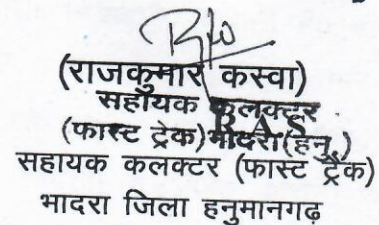 (राजकुमार कस्वा)
सहायक कलक्टर
RAS
(फास्ट ट्रेक) भादरा (हनु.)
सहायक कलक्टर (फास्ट ट्रैक)
भादरा जिला हनुमानगढ़